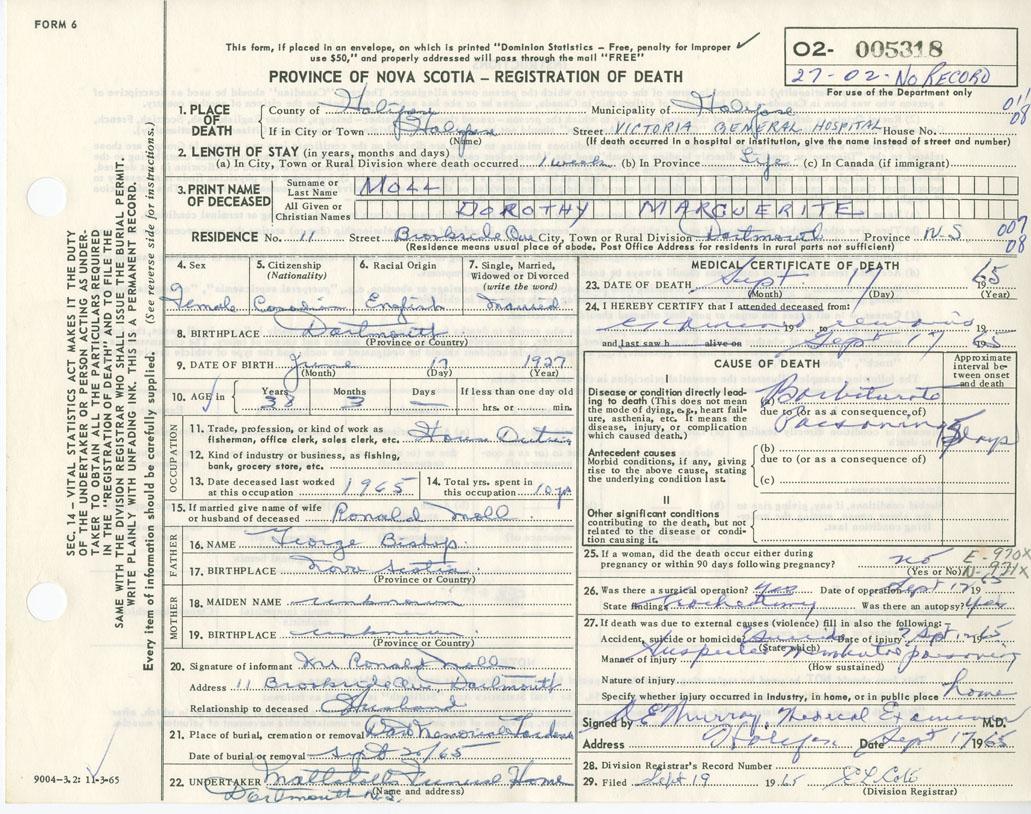 FORM 6
This form, if placed in an envelope, on which is printed "Dominion Statistics – Free, penalty for improper
use $50," and properly addressed will pass through the mail "FREE"
O2- 005318
27-02-No RECORD
For use of the Department only
PROVINCE OF NOVA SCOTIA – REGISTRATION OF DEATH
011
08
1. PLACE OF DEATH
County of Halifax Municipality of Halifax
If in City or Town Halifax Street VICTORIA GENERAL HOSPITAL House No.
(Name) (If death occurred in a hospital or institution, give the name instead of street and number)
2. LENGTH OF STAY (in years, months and days)
(a) In City, Town or Rural Division where death occurred 1 week (b) In Province Life (c) In Canada (if immigrant)
3. PRINT NAME OF DECEASED
Surname or Last Name MOLL
All Given or Christian Names DOROTHY MARGUERITE
RESIDENCE No. 11 Street Brookside Ave City, Town or Rural Division Dartmouth Province N.S
(Residence means place of abode. Post Office Address for residents in rural parts not sufficient)
007
08
4. Sex Female
5. Citizenship (Nationality) Canadian
6. Racial Origin English
7. Single, Married, Widowed or Divorced (write the word) Married
8. BIRTHPLACE Dartmouth
(Province or Country)
9. DATE OF BIRTH June 17 1927
(Month) (Day) (Year)
10. AGE in Years 38 Months 3 Days — If less than one day old hrs. or min.
OCCUPATION
11. Trade, profession, or kind of work as fisherman, office clerk, sales clerk, etc. House Duties
12. Kind of industry or business, as fishing, bank, grocery store, etc.
13. Date deceased last worked at this occupation 1965
14. Total yrs. spent in this occupation 10 yrs
15. If married give name of wife or husband of deceased Ronald Moll
FATHER
16. NAME George Bishop
17. BIRTHPLACE Nova Scotia
(Province or Country)
MOTHER
18. MAIDEN NAME unknown
19. BIRTHPLACE unknown
(Province or Country)
20. Signature of informant Mr Ronald Moll
Address 11 Brookside Ave, Dartmouth
Relationship to deceased Husband
21. Place of burial, cremation or removal Dart Memorial Gardens
Date of burial or removal Sept 20/65
22. UNDERTAKER Funeral Home
(Name and address)
Dartmouth N.S.
MEDICAL CERTIFICATE OF DEATH
23. DATE OF DEATH Sept. 17 1965
(Month) (Day) (Year)
24. I HERECY CERTIFY that I attended deceased from:
examined 19 to remains 19
and last saw h alive on Sept 17 1965
CAUSE OF DEATH
Approximate interval between onset and death
I
Disease or condition directly leading to death (This does not mean the mode of dying, e.g., heart failure, asthenia, etc. It means the disease, injury, or complication which caused death.)
(a) Barbiturate
due to (or as a consequence of)
Poisoning 5 days
Antecedent causes
Morbid conditions, if any, giving rise to the above cause, stating the underlying condition last.
(b)
due to (or as a consequence of)
(c)
II
Other significant conditions
contributing to the death, but not related to the disease or condition causing it.
25. If a woman, did the death occur either during pregnancy or within 90 days following pregnancy? no
(Yes or No)
E-970X
N-971X
26. Was there a surgical operation? yes Date of operation Sept 17 1965
State findings Tracheotomy Was there an autopsy? yes
27. If death was due to external causes (violence) fill in also the following:
Accident, suicide or homicide? ? Suicide Date of injury ? Sept 12 1965
(State which)
Manner of injury Suspected poisoning
(How sustained)
Nature of injury
Specify whether injury occurred in Industry, in home, or in public place home
Signed by Murray, Medical Examiner M.D.
Address Halifax Date Sept 17 1965
28. Division Registrar's Record Number
29. Filed Sept 19 1965
(Division Registrar)
SEC. 14 – VITAL STATISTICS ACT MAKES IT THE DUTY
OF THE UNDERTAKER OR PERSON ACTING AS UNDER-
TAKER TO OBTAIN ALL THE PARTICULARS REQUIRED
IN THE "REGISTRATION OF DEATH" AND TO FILE THE
SAME WITH THE DIVISION REGISTRAR WHO SHALL ISSUE THE BURIAL PERMIT.
WRITE PLAINLY WITH UNFADING INK. THIS IS A PERMANENT RECORD.
Every item of information should be carefully supplied. (See reverse side for instructions.)
9004-3.2: 11-3-65